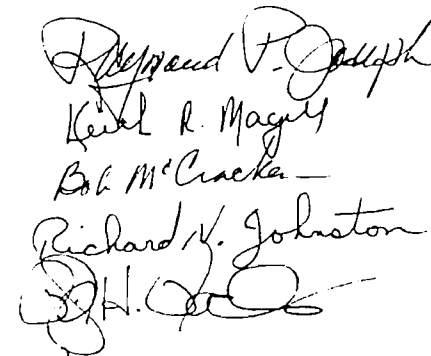 Raymond P. Joseph
Keith R. Magill
Bob McCracken
Richard N. Johnston
H.